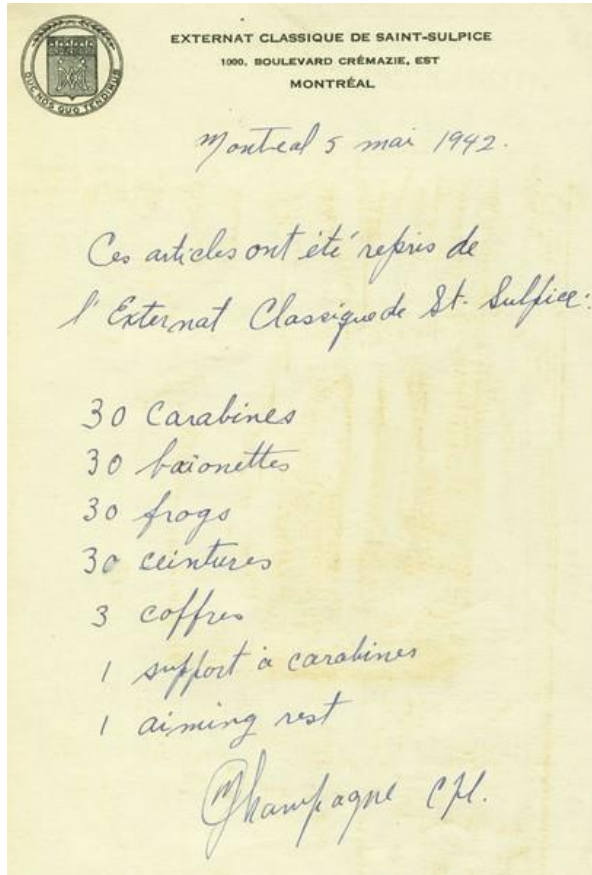 EXTERNAT CLASSIQUE DE SAINT-SULPICE
1000, BOULEVARD CRÉMAZIE, EST
MONTRÉAL
DUC NOS QUO TENDIMUS
Montreal 5 mai 1942.
Ces articles ont été repris de
l'Externat Classique de St-Sulpice:
30 Carabines
30 baionettes
30 frogs
30 ceintures
3 coffres
1 support à carabines
1 aiming rest
Champagne Cpl.